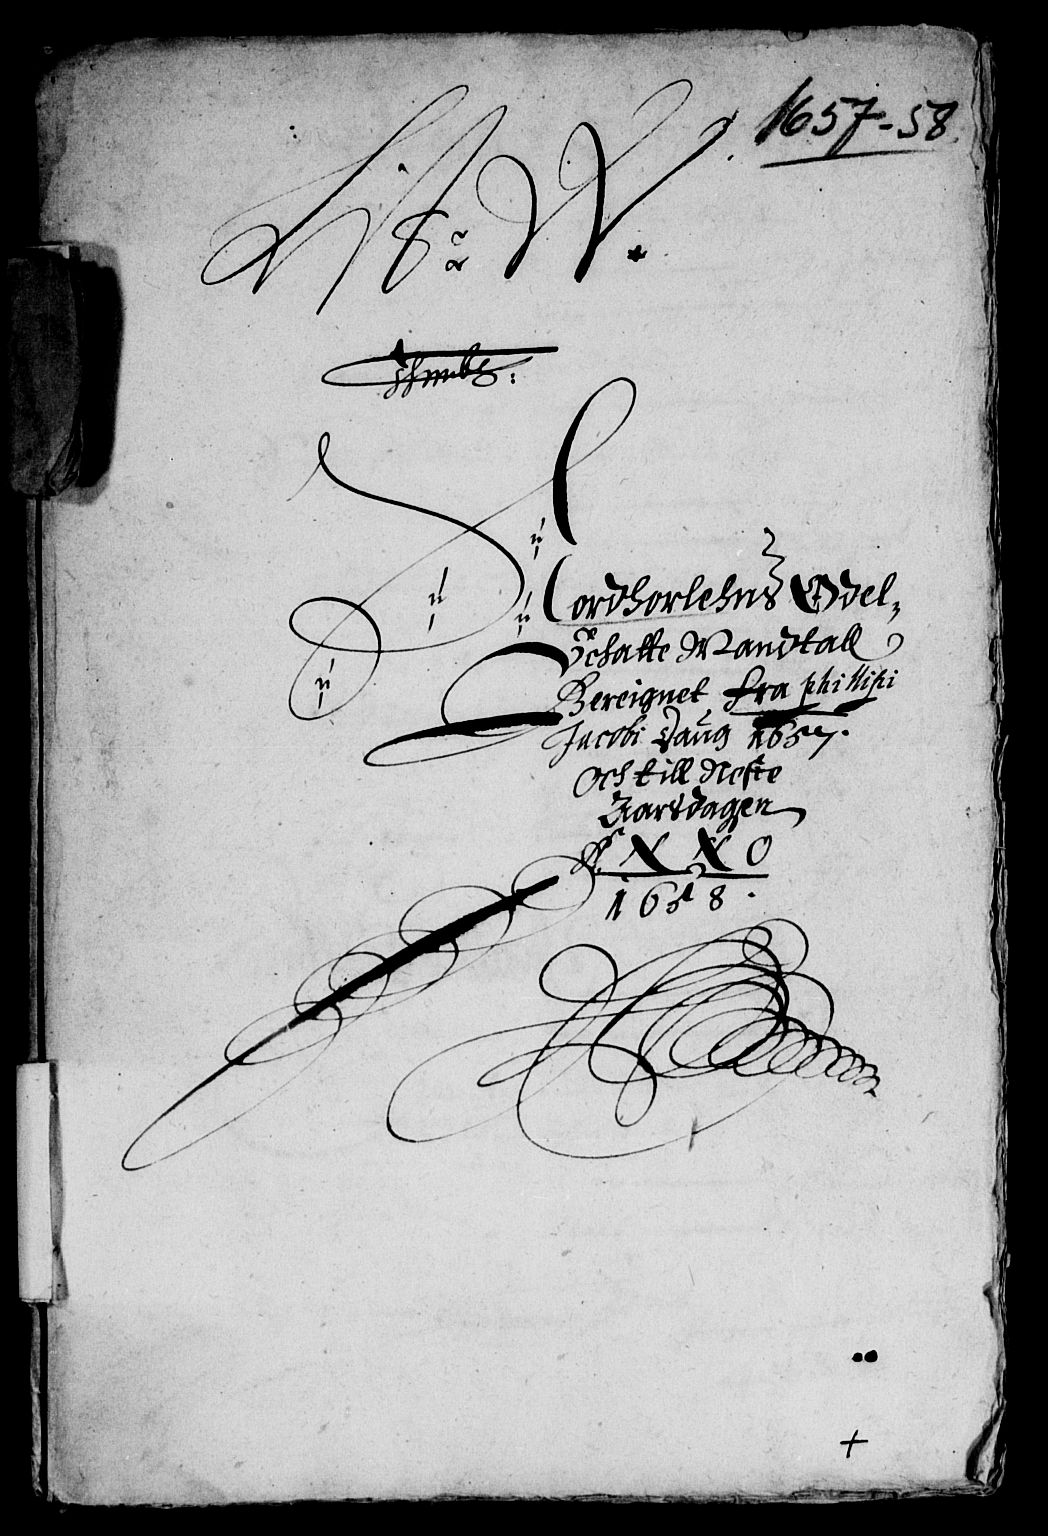 1657-58.
Nordhorlehns Odel,
Schatte Mandtall
Bereignet fra phillipi
Jacobi Daug 1657.
Och till Neste
Aarsdagen
1658.